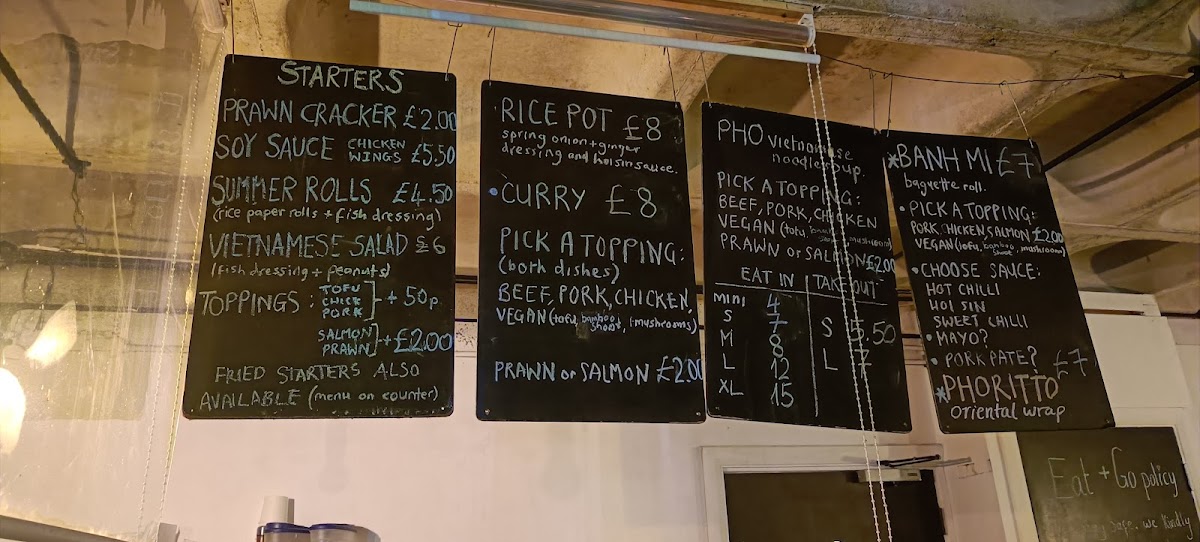 STARTERS
PRAWN CRACKER £2.00
SOY SAUCE CHICKEN WINGS £5.50
SUMMER ROLLS £4.50
(rice paper rolls + fish dressing)
VIETNAMESE SALAD £6
(fish dressing + peanuts)
TOPPINGS: TOFU CHICK PORK } + 50p.
SALMON PRAWN } + £2.00
FRIED STARTERS ALSO
AVAILABLE (menu on counter)
RICE POT £8
spring onion + ginger
dressing and hoisin sauce.
• CURRY £8
PICK A TOPPING:
(both dishes)
BEEF, PORK, CHICKEN,
VEGAN (tofu, bamboo shoot, mushrooms)
PRAWN or SALMON £2.00
PHO vietnamese
noodle soup.
PICK A TOPPING:
BEEF, PORK, CHICKEN
VEGAN (tofu, mushrooms)
PRAWN or SALMON £2.00
EAT IN TAKE OUT
MINI 4
S 7 S 5.50
M 8 L 7
L 12
XL 15
*BANH MI £7
baguette roll.
• PICK A TOPPING:
PORK, CHICKEN SALMON £2.00
VEGAN (tofu, bamboo shoot, mushrooms)
• CHOOSE SAUCE:
HOT CHILLI
HOI SIN
SWEET CHILLI
• MAYO?
• PORK PATE? £7
*PHORITTO
oriental wrap
Eat + Go policy
safe. we kindly